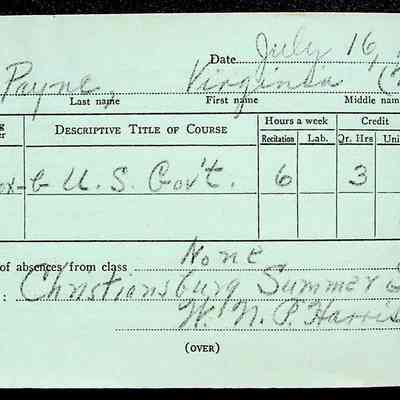 Date July 16,
Payne, Virginia (
Last name First name Middle nam
g Descriptive Title of Course Hours a week Credit
er Recitation Lab. Qr. Hrs Uni
ox-C U. S. Gov't. 6 3
of absences from class None
: Christiansburg Summer S
W. N. P. Harris
(OVER)